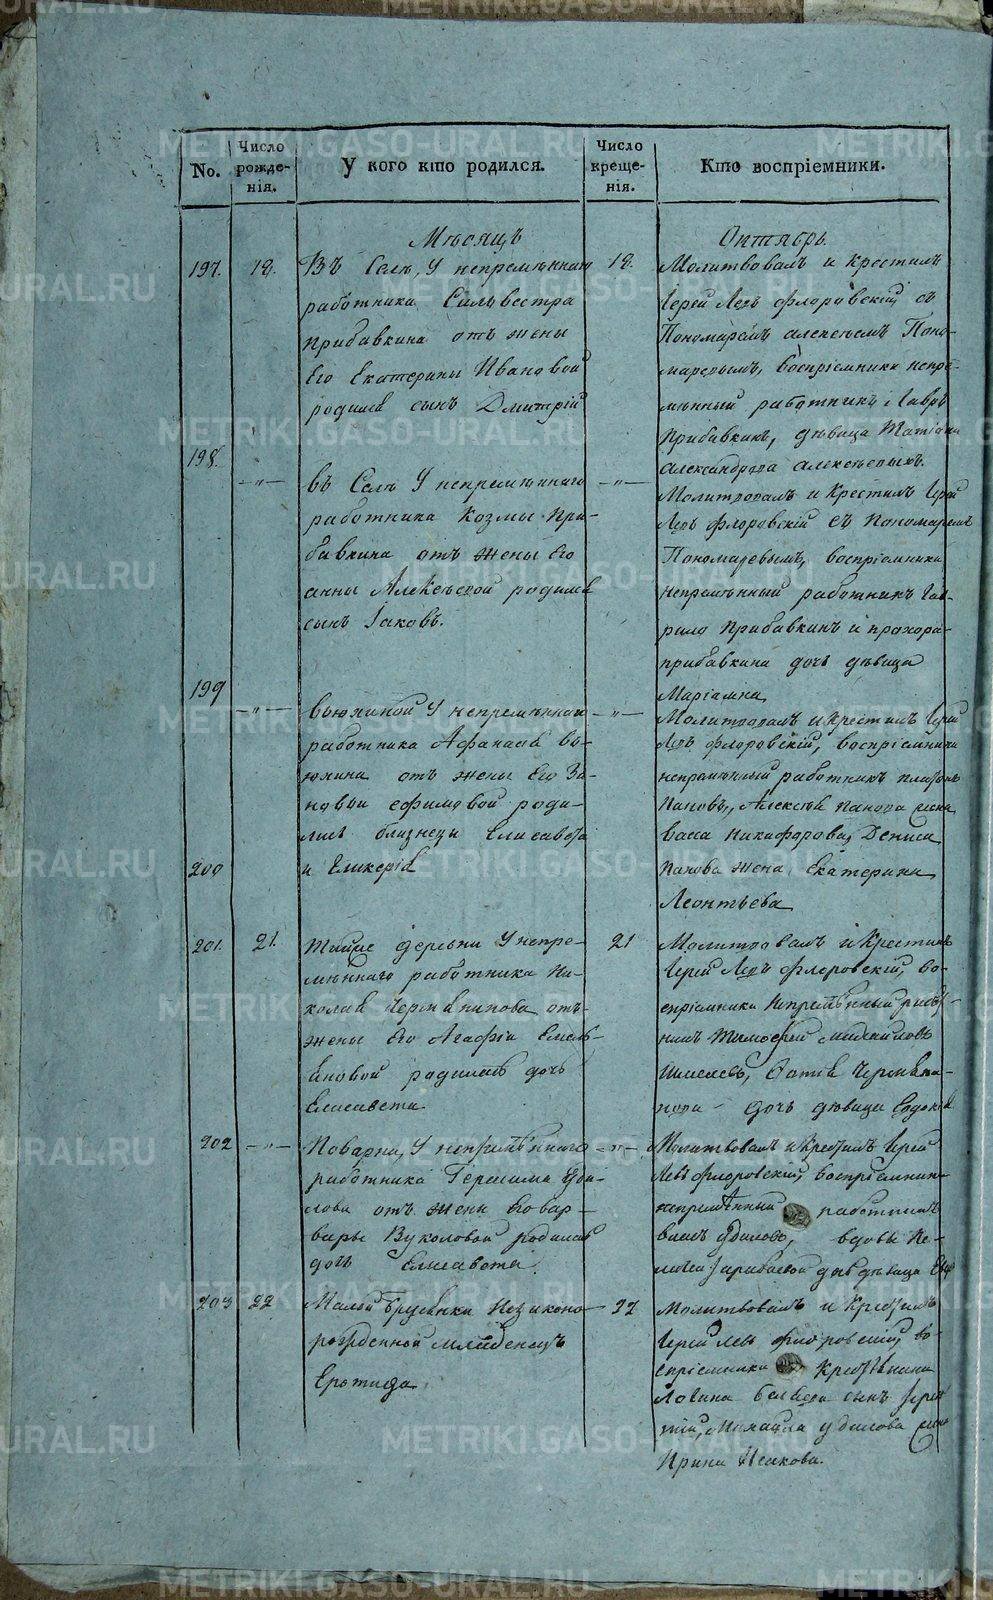 No.
Число рожде-нія.
У кого кто родился.
Число креще-нія.
Кто воспріемники.
Мѣсяцъ
Октябрь.
197.
18.
Въ Селѣ, У непремѣннаго
работника Сильвестра
Прибавкина отъ жены
Его Екатерины Ивановой
родился сынъ Дмитрій
18.
Молитвовалъ и крестилъ
Іерей Левъ Флоровскій съ
Пономаремъ Алексѣемъ Поно-
маревымъ, Воспріемники непре-
мѣнный работникъ
Прибавкинъ, дѣвица Татіана
Александрова
198.
—"—
въ Селѣ У непремѣннаго
работника Козмы При-
бавкина отъ жены Его
Анны Алексѣевой родился
сынъ Іаковъ.
—"—
Молитвовалъ и Крестилъ Іерей
Левъ Флоровскій съ Пономаремъ
Пономаревымъ, воспріемники
непремѣнный работникъ Гав-
рило Прибавкинъ и Прохора
Прибавкина дочь дѣвица
Маріамна
199
—"—
Вьюхиной У непремѣннаго
работника Афанасія Вь-
юхина отъ жены Его Зи-
новьи Ефимовой роди-
лись близнецы Елисавета
200
и Гликерія
—"—
Молитвовалъ и Крестилъ Іерей
Левъ Флоровскій, воспріемники
непремѣнный работникъ Платонъ
Пановъ, Алексѣя Панова жена
Васса Никифорова, Дениса
Панова жена Екатерина
Леонтьева
201.
21.
деревни У непре-
мѣннаго работника Ни-
колая отъ
жены Его Агафіи Емель-
яновой родилась дочь
Елисавета
21
Молитвовалъ и Крестилъ
Іерей Левъ Флоровскій, во-
спріемники Непремѣнный работ-
никъ Тимофей Михайловъ
дочь дѣвица Евдокія
202
—"—
Поварни, У непремѣннаго
работника Герасима Уди-
лова отъ жены Его Вар-
вары Вуколовой родилась
дочь Елисавета.
—"—
Молитвовалъ и Крестилъ Іерей
Левъ Флоровскій, воспріемники
непремѣнный работникъ
вдовы Пе-
дѣвица
203
22
Малой Брусянки Незаконо-
рожденной младенецъ
22
Молитвовалъ и Крестилъ
Іерей Левъ Флоровскій, во-
спріемники Крестьянина
сынъ
Михаила Удилова жена
Ирина Исакова.
METRIKI.GASO-URAL.RU